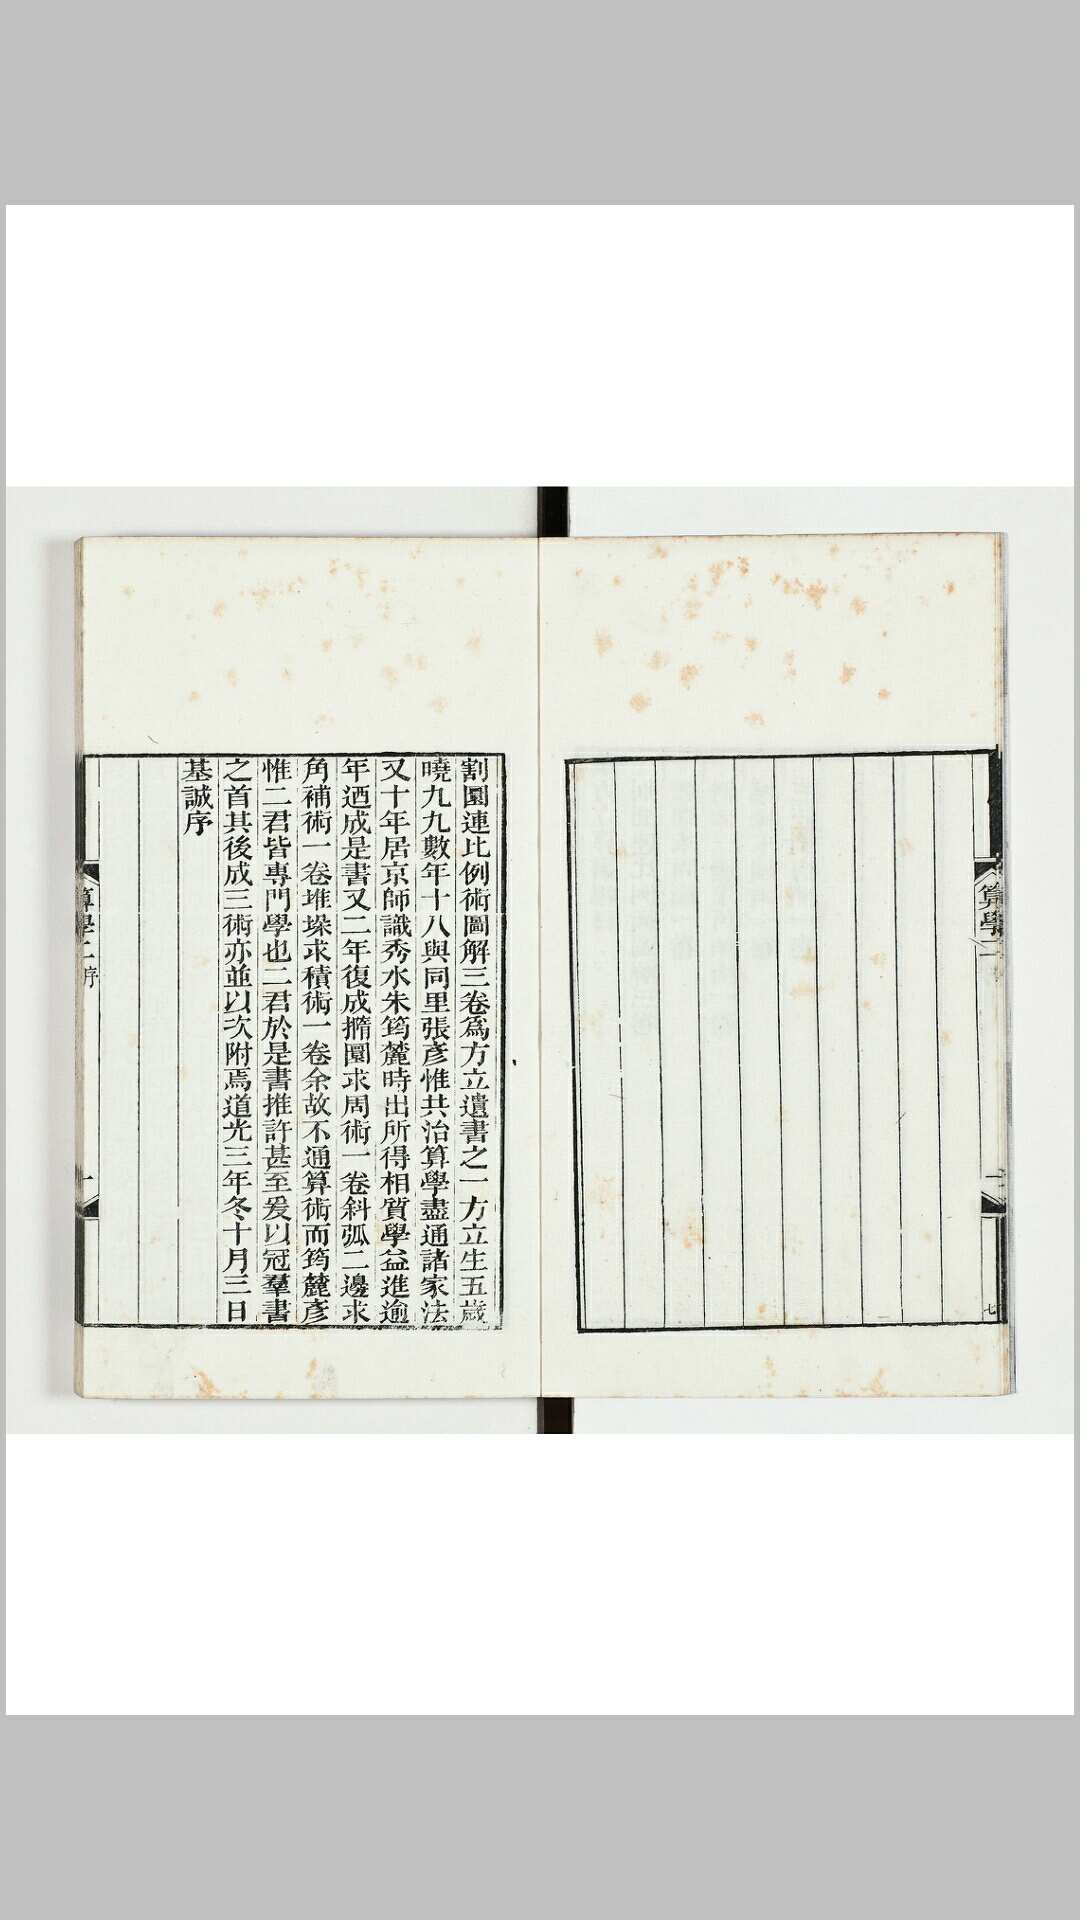 算學二
七
割圜連比例術圖解三卷爲方立遺書之一方立生五歲
曉九九數年十八與同里張彥惟共治算學盡通諸家法
又十年居京師識秀水朱筠麓時出所得相質學益進逾
年迺成是書又二年復成橢圜求周術一卷斜弧二邊求
角補術一卷堆垛求積術一卷余故不通算術而筠麓彥
惟二君皆專門學也二君於是書推許甚至爰以冠羣書
之首其後成三術亦並以次附焉道光三年冬十月三日
基誠序
算學二序
一